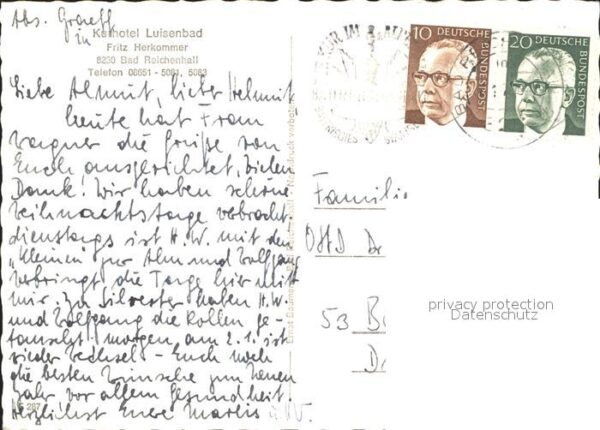 Abs. Graeff
in
Kurhotel Luisenbad
Fritz Herkommer
8230 Bad Reichenhall
Telefon 08651 - 5081, 5083
Liebe Almut, lieber Helmut,
heute hat Frau
Wagner die Grüße von
Euch ausgerichtet, vielen
Dank! Wir haben schöne
Weihnachtstage verbracht
dienstags ist H.W. mit den
"Kleinen" zur Alm und Wolfgang
verbringt die Tage hier mit
mir. Zu Silvester haben H.W.
und Wolfgang die Rollen ge-
tauscht! morgen, am 2.1. ist
wieder Wechsel - Euch noch
die besten Wünsche zum Neuen
Jahr vor allem Gesundheit
Herzlichst Eure Marlis
287
10 DEUTSCHE BUNDESPOST
20 DEUTSCHE BUNDESPOST
Familie
OStD Dr
53 B
D
privacy protection
Datenschutz